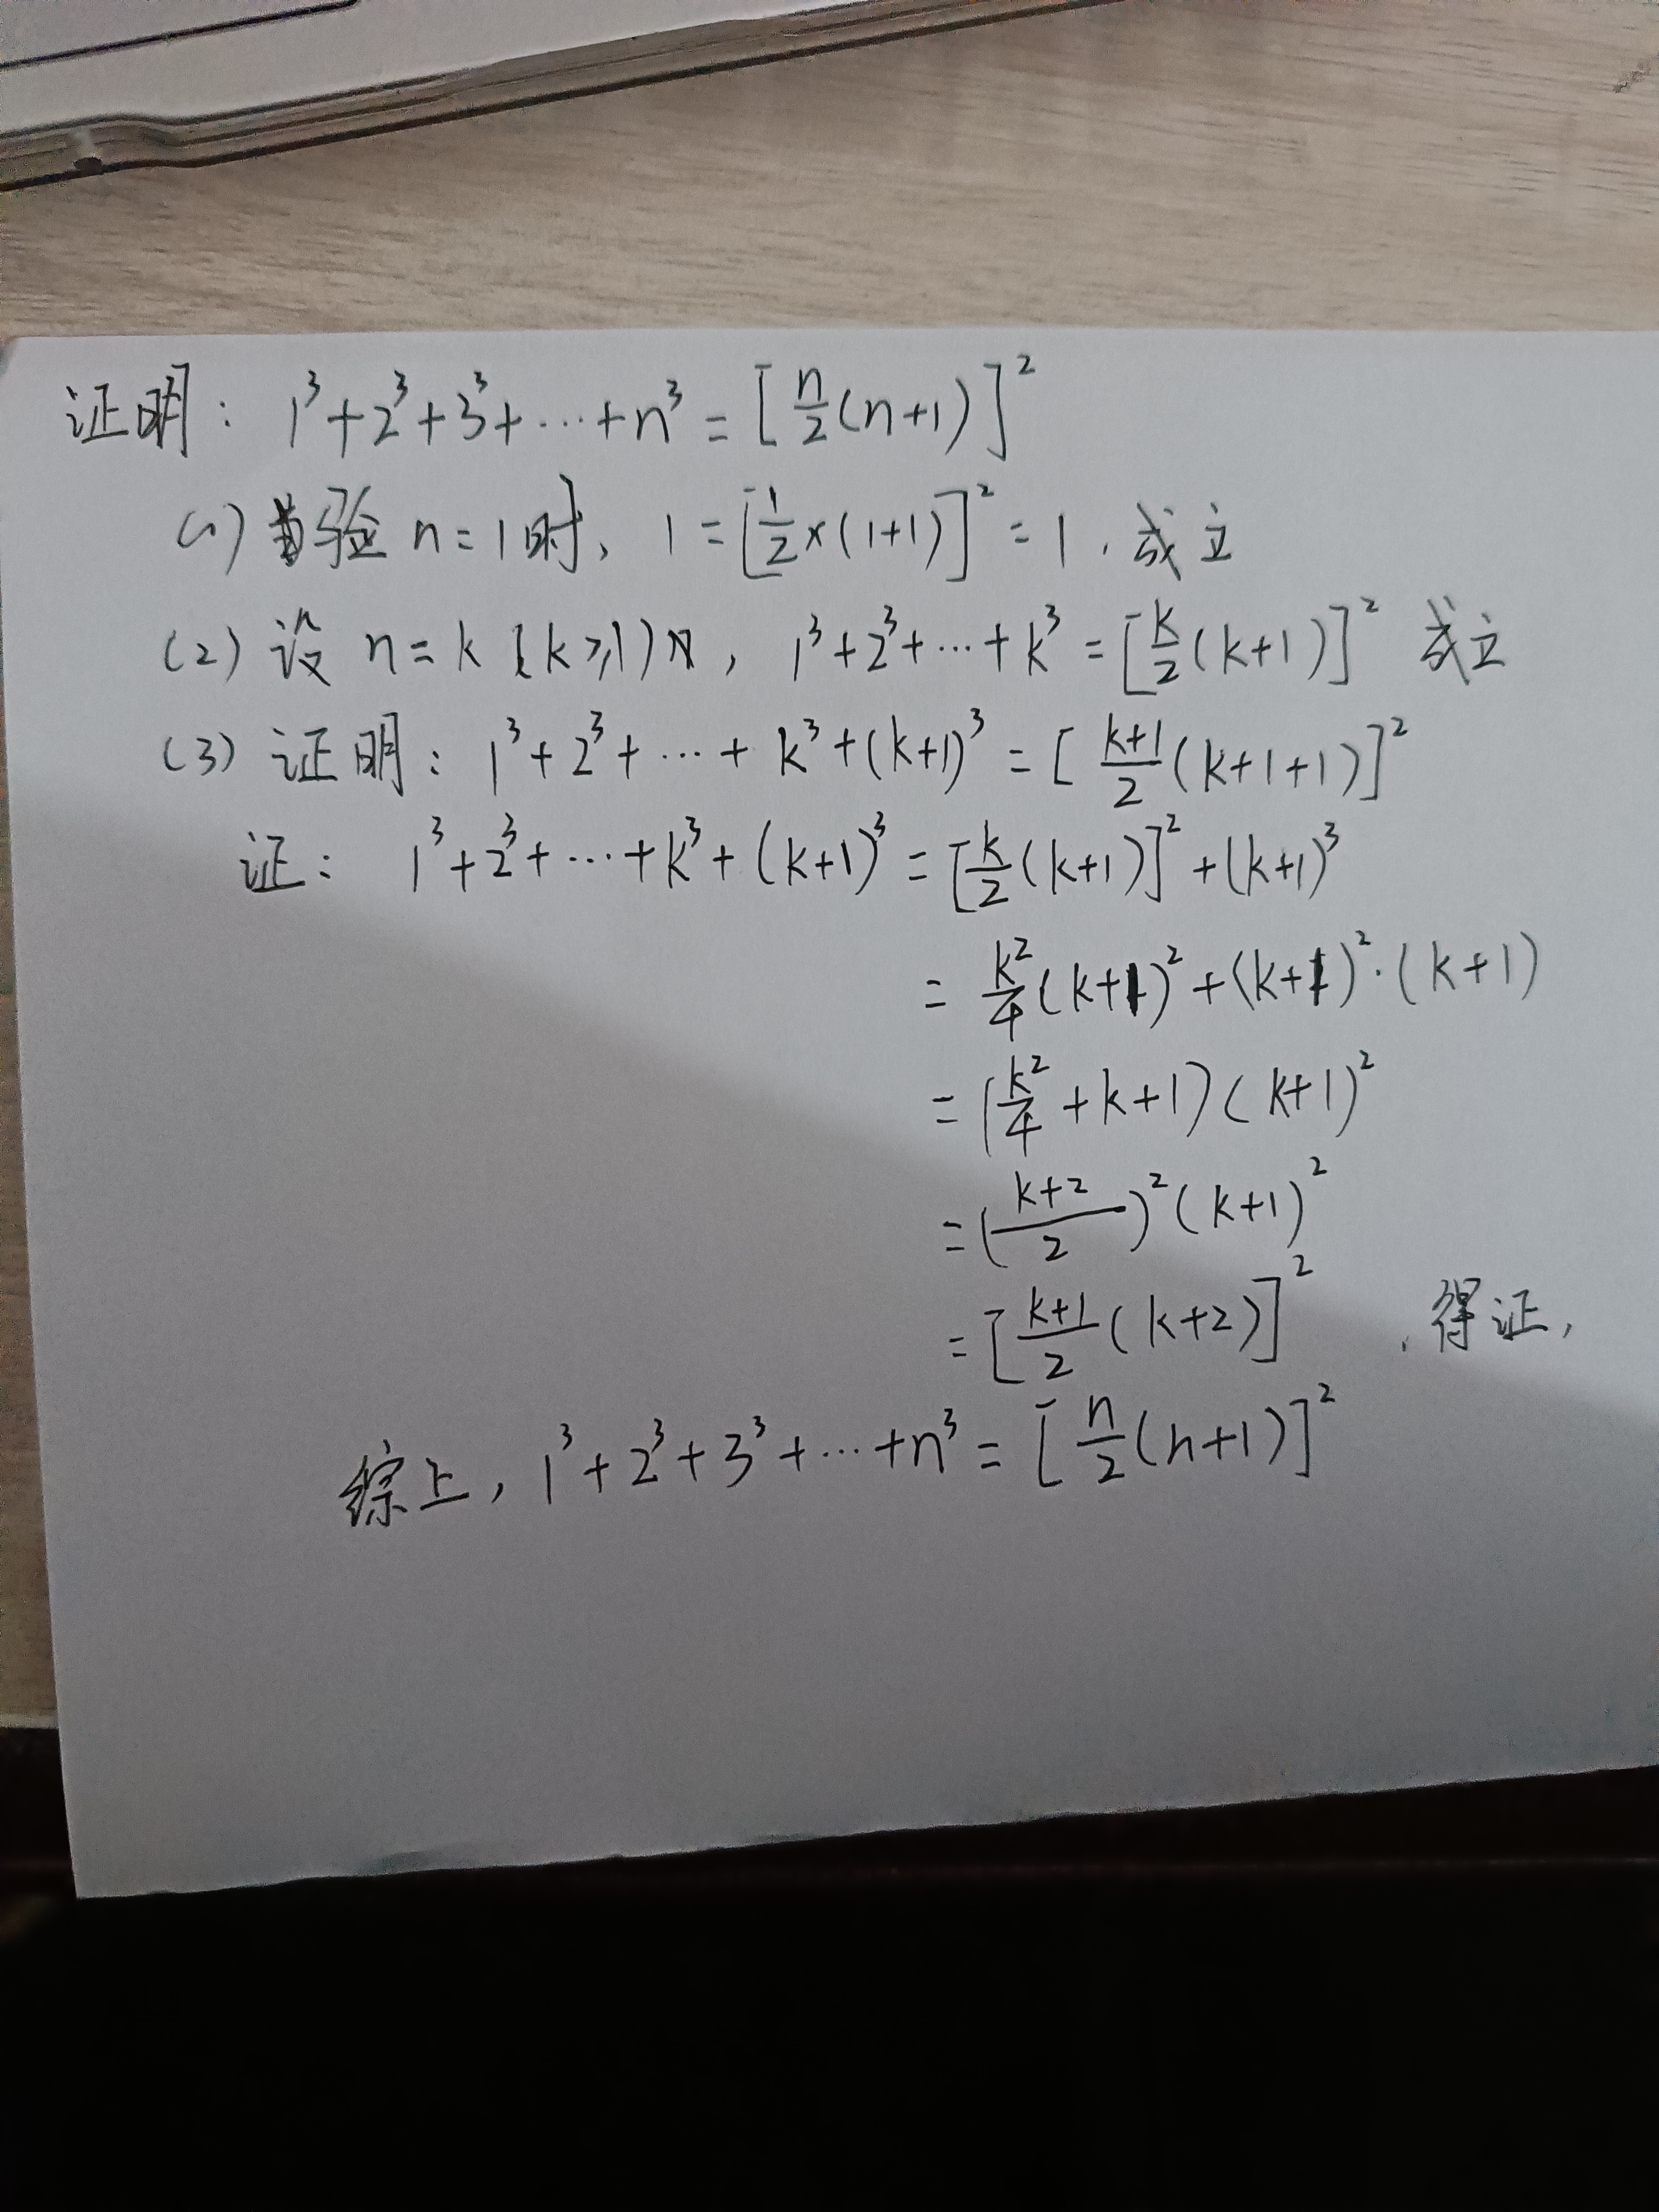 证明：1³+2³+3³+…+n³=[n/2(n+1)]²
(1) 验 n=1时，1=[1/2×(1+1)]²=1，成立
(2) 设 n=k (k≥1)时，1³+2³+…+k³=[k/2(k+1)]² 成立
(3) 证明：1³+2³+…+k³+(k+1)³=[(k+1)/2(k+1+1)]²
证：1³+2³+…+k³+(k+1)³=[k/2(k+1)]²+(k+1)³
=k²/4(k+1)²+(k+1)²·(k+1)
=(k²/4+k+1)(k+1)²
=((k+2)/2)²(k+1)²
=[(k+1)/2(k+2)]²，得证，
综上，1³+2³+3³+…+n³=[n/2(n+1)]²